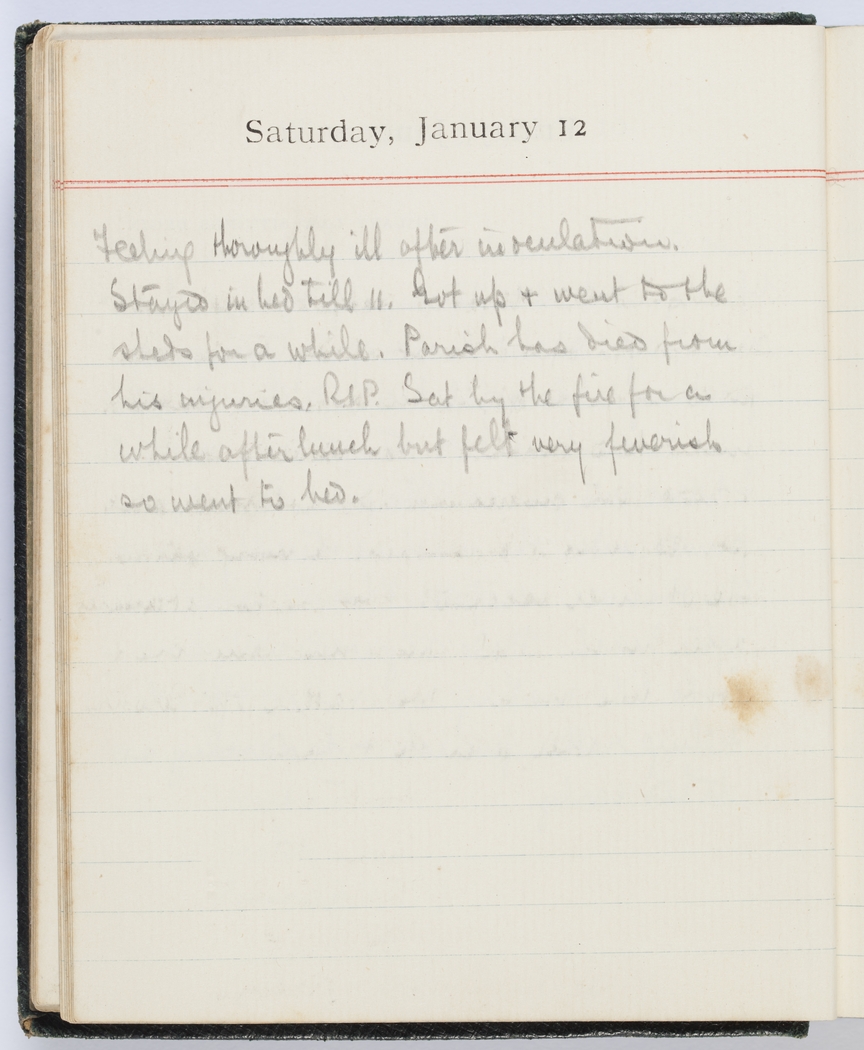 Saturday, January 12
Feeling thoroughly ill after inoculation.
Stayed in bed till 11. Got up + went to the
sheds for a while. Parish has died from
his injuries. R.I.P. Sat by the fire for a
while after lunch but felt very feverish
so went to bed.